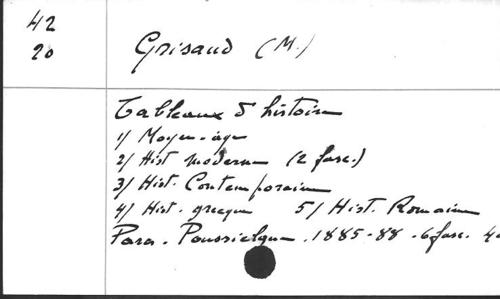 42
20
Grisaud (M.)
Tableaux d'histoire
1/ Moyen-âge
2/ Hist moderne (2 fasc.)
3/ Hist. Contemporaine
4/ Hist. grecque 5/ Hist. Romaine
Paris. Poussielgue. 1885-88. 6 fasc. 4o